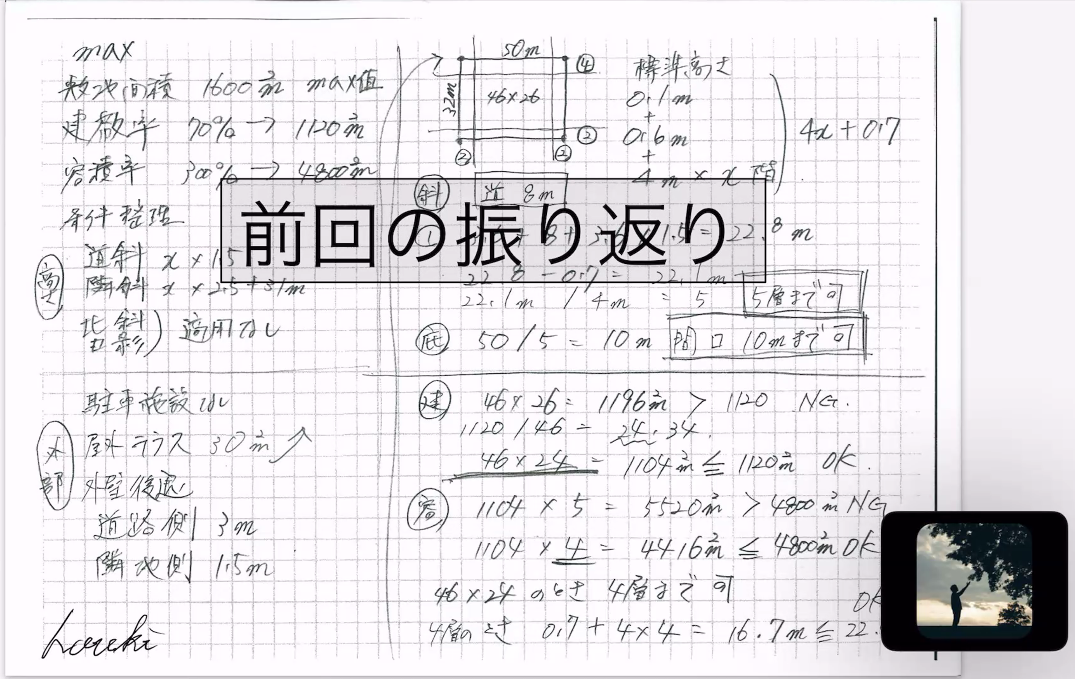 max
敷地面積 1600㎡ max値
建蔽率 70% → 1120㎡
容積率 300% → 4800㎡
条件整理
高さ
道斜 x × 1.5
隣斜 x × 2.5 + 31m
北斜
日影) 適用なし
駐車施設なし
外部
屋外テラス 30㎡
外壁後退
道路側 3m
隣地側 1.5m
Haruki
50m
32m
46×26
④
②
②
②
標準高さ
0.1m
+
0.6m
+
4m × x階
4x + 0.7
斜 道 8m
前回の振り返り
22.8m
22.8 - 0.7 = 22.1m
22.1m / 4m = 5 5層まで可
底 50/5 = 10m 間口 10mまで可
建 46×26 = 1196㎡ > 1120 NG.
1120/46 = 24.34.
46×24 = 1104㎡ ≦ 1120㎡ OK.
容 1104 × 5 = 5520㎡ > 4800㎡ NG
1104 × 4 = 4416㎡ ≦ 4800㎡ OK
46×24 のとき 4層まで可
4層のとき 0.7 + 4×4 = 16.7m ≦ 22.
OK